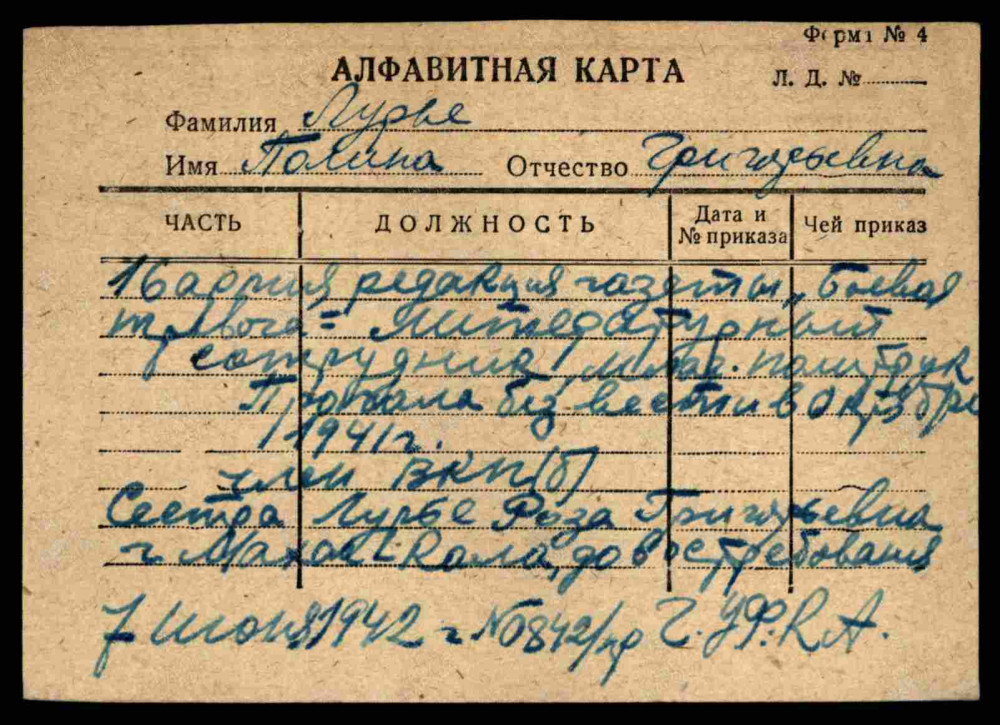 Форма № 4
АЛФАВИТНАЯ КАРТА
Л. Д. №
Фамилия Лурье
Имя Полина Отчество Григорьевна
ЧАСТЬ ДОЛЖНОСТЬ Дата и № приказа Чей приказ
16 армия редакция газеты „Боевая
тревога" Литературный
сотрудник, млад. политрук
Пропала без вести в октябре
1941 г.
член ВКП(б)
Сестра Лурье Роза Григорьевна
г. Махач-Кала, до востребования
7 июня 1942 г №0842/пр Г.УФ.К.А.